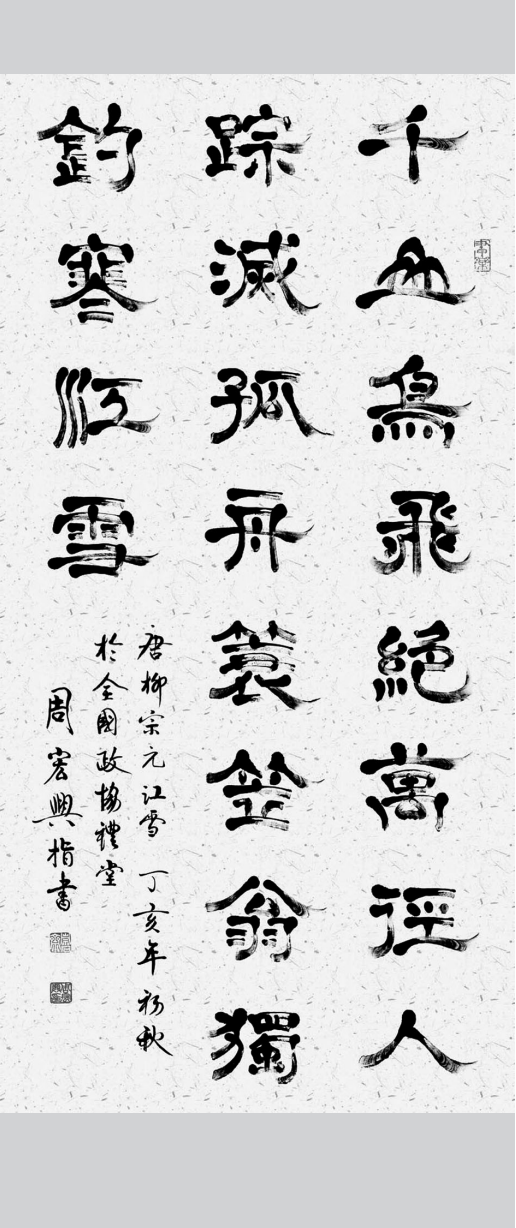 千山鳥飛絕萬徑人
踪滅孤舟簑笠翁獨
釣寒江雪
唐柳宗元江雪 丁亥年初秋
於全國政協禮堂
周宏興指書